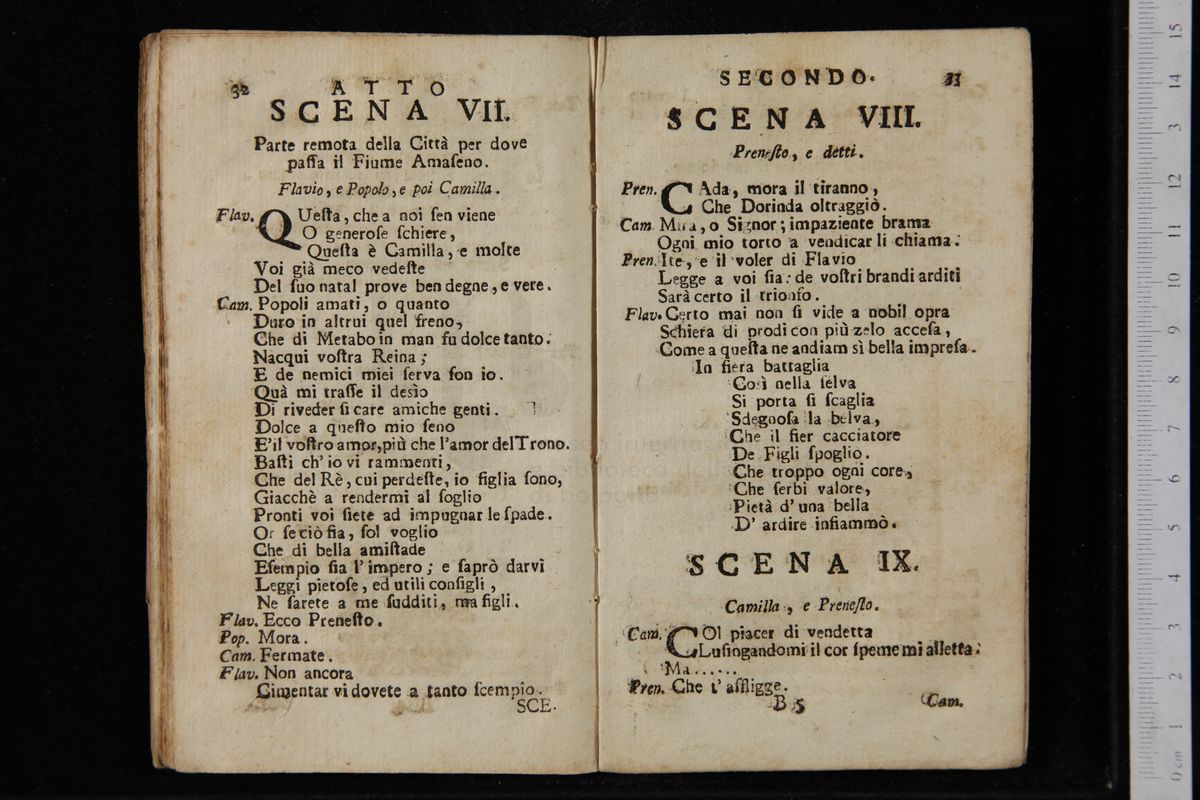 32 ATTO
SCENA VII.
Parte remota della Città per dove
paſſa il Fiume Amaſeno.
Flavio, e Popolo, e poi Camilla.
Flav. QUeſta, che a noi ſen viene
O generoſe ſchiere,
Queſta è Camilla, e molte
Voi già meco vedeſte
Del ſuo natal prove ben degne, e vere.
Cam. Popoli amati, o quanto
Duro in altrui quel freno,
Che di Metabo in man fu dolce tanto.
Nacqui voſtra Reina;
E de nemici miei ſerva ſon io.
Quà mi traſſe il desìo
Di riveder ſi care amiche genti.
Dolce a queſto mio ſeno
E'il voſtro amor, più che l'amor del Trono.
Baſti ch' io vi rammenti,
Che del Rè, cui perdeſte, io figlia ſono,
Giacchè a rendermi al ſoglio
Pronti voi ſiete ad impugnar le ſpade.
Or ſe ciò fia, ſol voglio
Che di bella amiſtade
Eſempio ſia l' impero; e ſaprò darvi
Leggi pietoſe, ed utili conſigli,
Ne ſarete a me ſudditi, ma figli.
Flav. Ecco Preneſto.
Pop. Mora.
Cam. Fermate.
Flav. Non ancora
Cimentar vi dovete a tanto ſcempio.
SCE.
SECONDO. 33
SCENA VIII.
Preneſto, e detti.
Pren. CAda, mora il tiranno,
Che Dorinda oltraggiò.
Cam. Mira, o Signor; impaziente brama
Ogni mio torto a vendicar li chiama.
Pren. Ite, e il voler di Flavio
Legge a voi ſia: de voſtri brandi arditi
Sarà certo il trionfo.
Flav. Certo mai non ſi vide a nobil opra
Schiera di prodi con più zelo acceſa,
Come a queſta ne andiam sì bella impreſa.
In fiera battaglia
Così nella ſelva
Si porta ſi ſcaglia
Sdegnoſa la belva,
Che il fier cacciatore
De Figli ſpoglio.
Che troppo ogni core,
Che ſerbi valore,
Pietà d' una bella
D' ardire infiammò.
SCENA IX.
Camilla, e Preneſto.
Cam. COl piacer di vendetta
Luſingandomi il cor ſpeme mi alletta.
Ma......
Pren. Che t' affligge.
B 5 Cam.